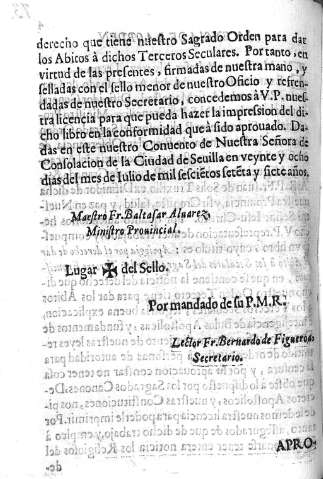 derecho que tiene nuestro Sagrado Orden para dar
los Abitos à dichos Terceros Seculares. Por tanto, en
virtud de las presentes, firmadas de nuestra mano, y
selladas con el sello menor de nuestro Oficio y refren-
dadas de nuestro Secretario, concedemos à V.P. nues-
tra licencia para que pueda hazer la impression del di-
cho libro en la conformidad que à sido aprouado. Da-
das en este nuestro Conuento de Nuestra Señora de
Consolacion de la Ciudad de Seuilla en veynte y ocho
dias del mes de Iulio de mil seſciètos setèta y siete años,
Maestro Fr. Baltasar Aluarez.
Ministro Prouincial.
Lugar ✠ del Sello.
Por mandado de ſu P.M.R.
Lector Fr. Bernardo de Figueroa
Secretario.
APRO-